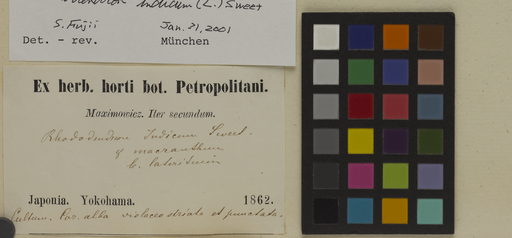 indicum (L.) Sweet
S. Fujii Jan. 21, 2001
Det. – rev. München
Ex herb. horti bot. Petropolitani.
Maximowicz. Iter secundum.
Rhododendron Indicum Sweet.
macranthum
b. lateritium
Japonia. Yokohama. 1862.
Cultum. alba violaceo striata et punctata.